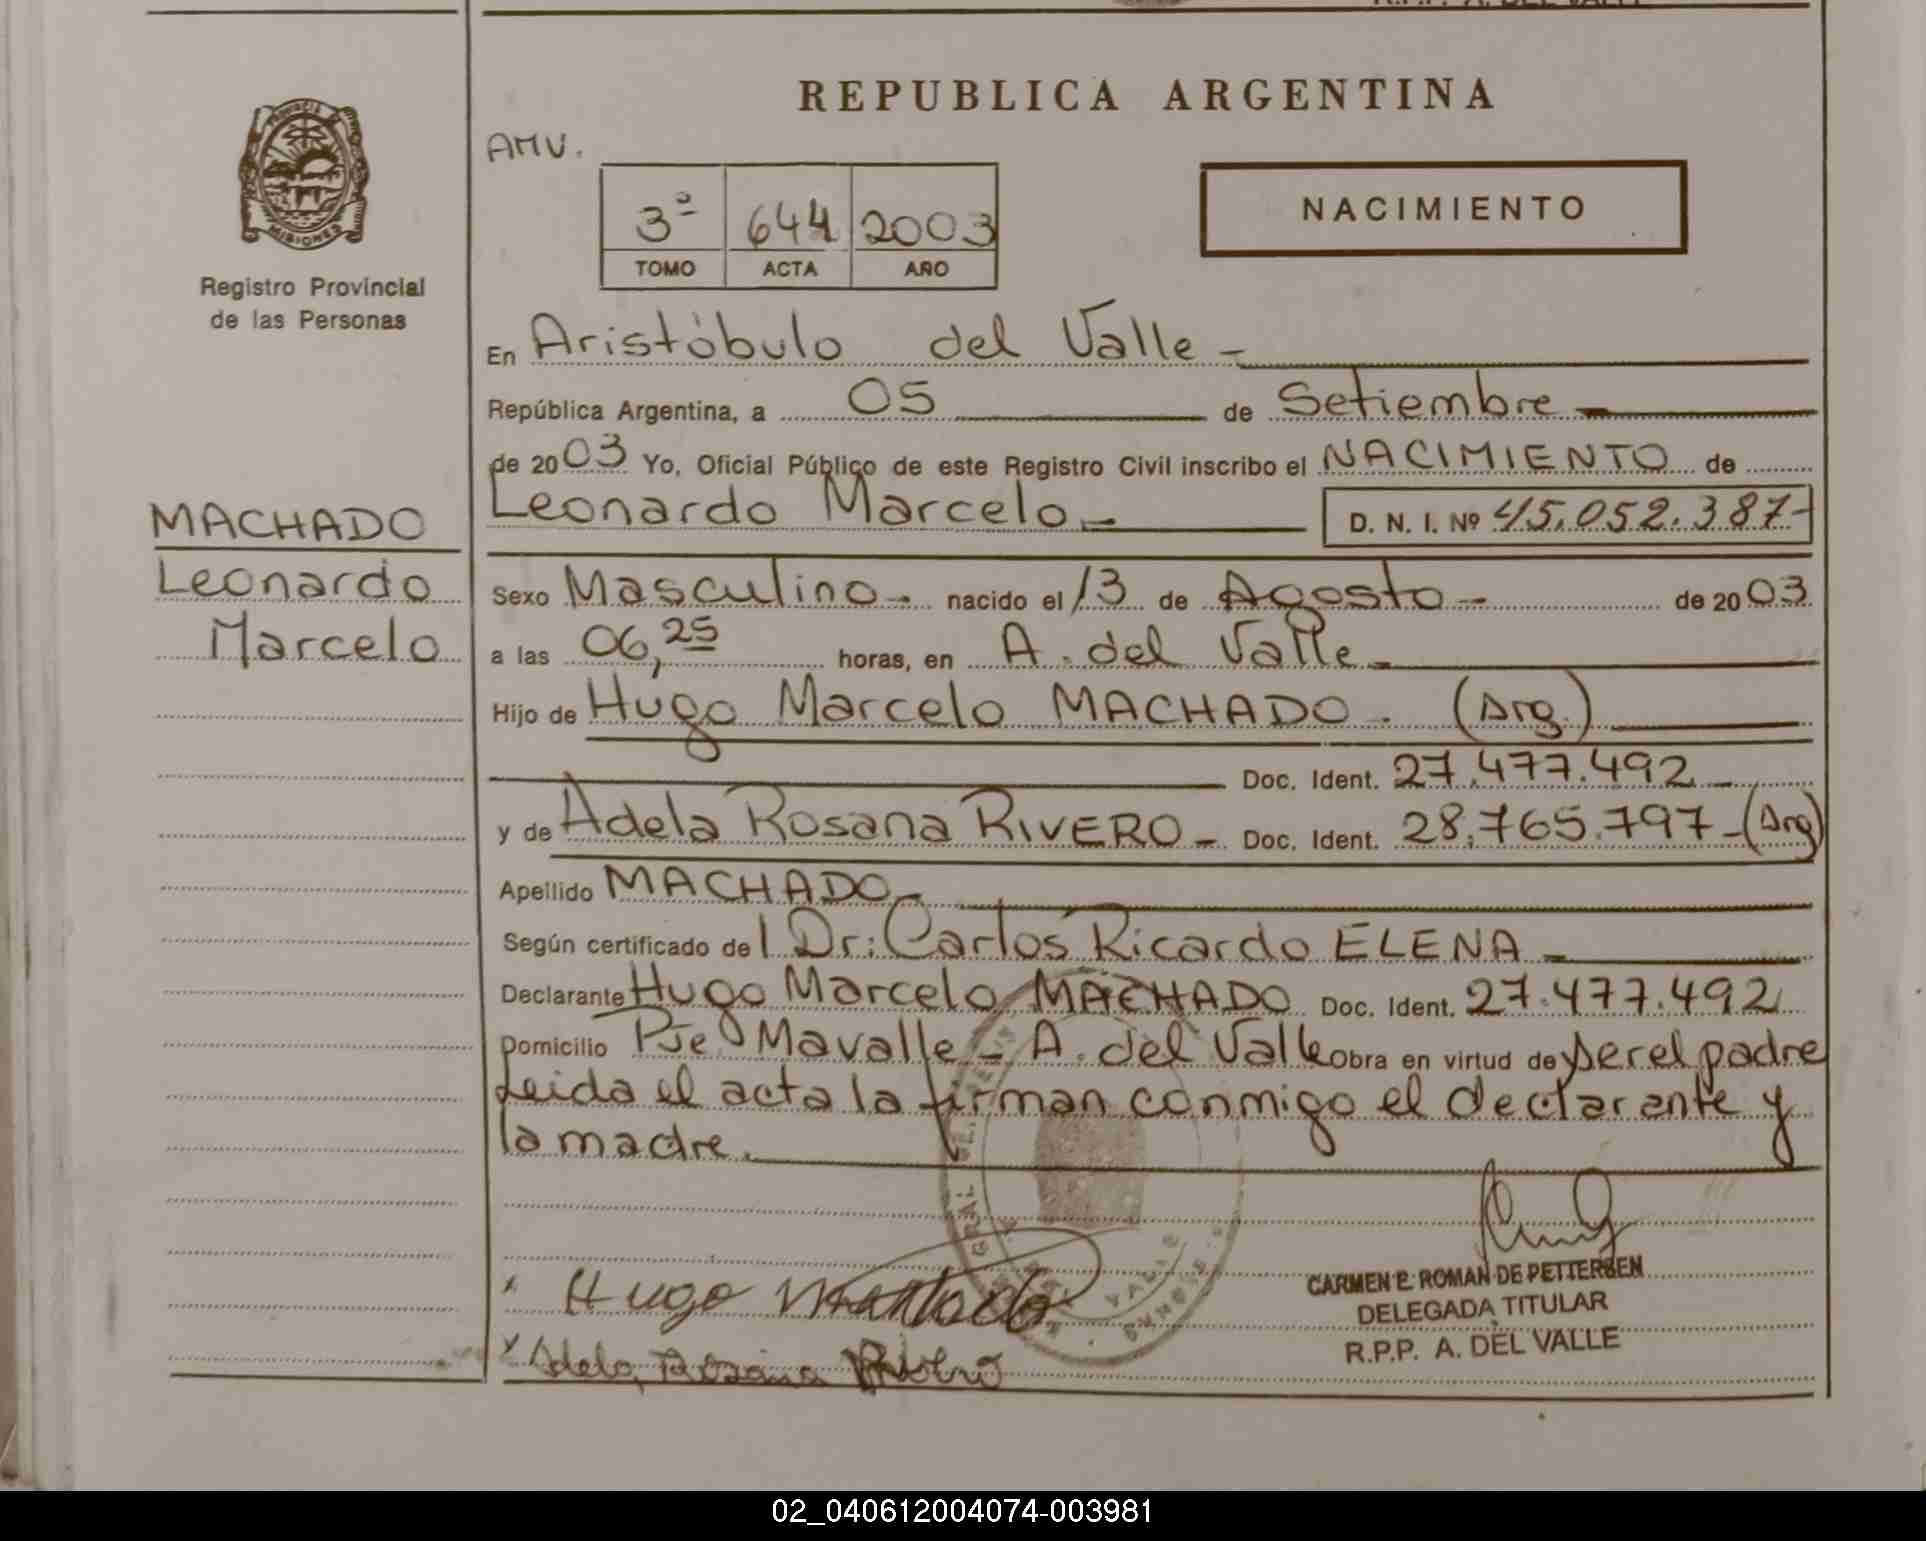 REPUBLICA ARGENTINA
AMV.
3º 644 2003
TOMO ACTA AÑO
NACIMIENTO
MISIONES
Registro Provincial
de las Personas
En Aristóbulo del Valle -
República Argentina, a 05 de Setiembre
de 2003 Yo, Oficial Público de este Registro Civil inscribo el NACIMIENTO de
Leonardo Marcelo - D. N. I. Nº 45.052.387-
MACHADO
Leonardo
Marcelo
Sexo Masculino - nacido el 13 de Agosto - de 2003
a las 06,25 horas, en A. del Valle -
Hijo de Hugo Marcelo MACHADO. (Arg.)
Doc. Ident. 27.477.492 -
y de Adela Rosana RIVERO - Doc. Ident. 28.765.797 - (Arg)
Apellido MACHADO -
Según certificado del Dr: Carlos Ricardo ELENA -
Declarante Hugo Marcelo MACHADO Doc. Ident. 27.477.492
Domicilio Pje Mavalle - A. del Valle obra en virtud de ser el padre
Leida el acta la firman conmigo el declarante y
la madre.
CARMEN E. ROMAN DE PETTERSEN
DELEGADA TITULAR
R.P.P. A. DEL VALLE
Hugo Machado
Adela Rosana Rivero
02_040612004074-003981